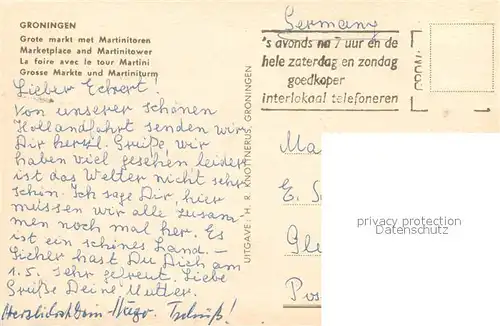 GRONINGEN
Grote markt met Martinitoren
Marketplace and Martinitower
La foire avec le tour Martini
Grosse Markte und Martiniturm
Lieber Eckert!
Von unserer schönen
Hollandfahrt senden wir
Dir herzl. Grüße, wir
haben viel gesehen leider
ist das Wetter nicht sehr
schön. Ich sage Dir, hier
müssen wir alle zusam-
men noch mal her. Es
ist ein schönes Land. –
Sicher hast Du Dich am
1.5. sehr gefreut. Liebe
Grüße Deine Mutter.
Herzlichst Dein Hugo. Tschüß!
UITGAVE: H. R. KNOTTNERUS, GRONINGEN
Germany
's avonds na 7 uur en de
hele zaterdag en zondag
goedkoper
interlokaal telefoneren
Ma
E. S
Gl
Pos
privacy protection
Datenschutz